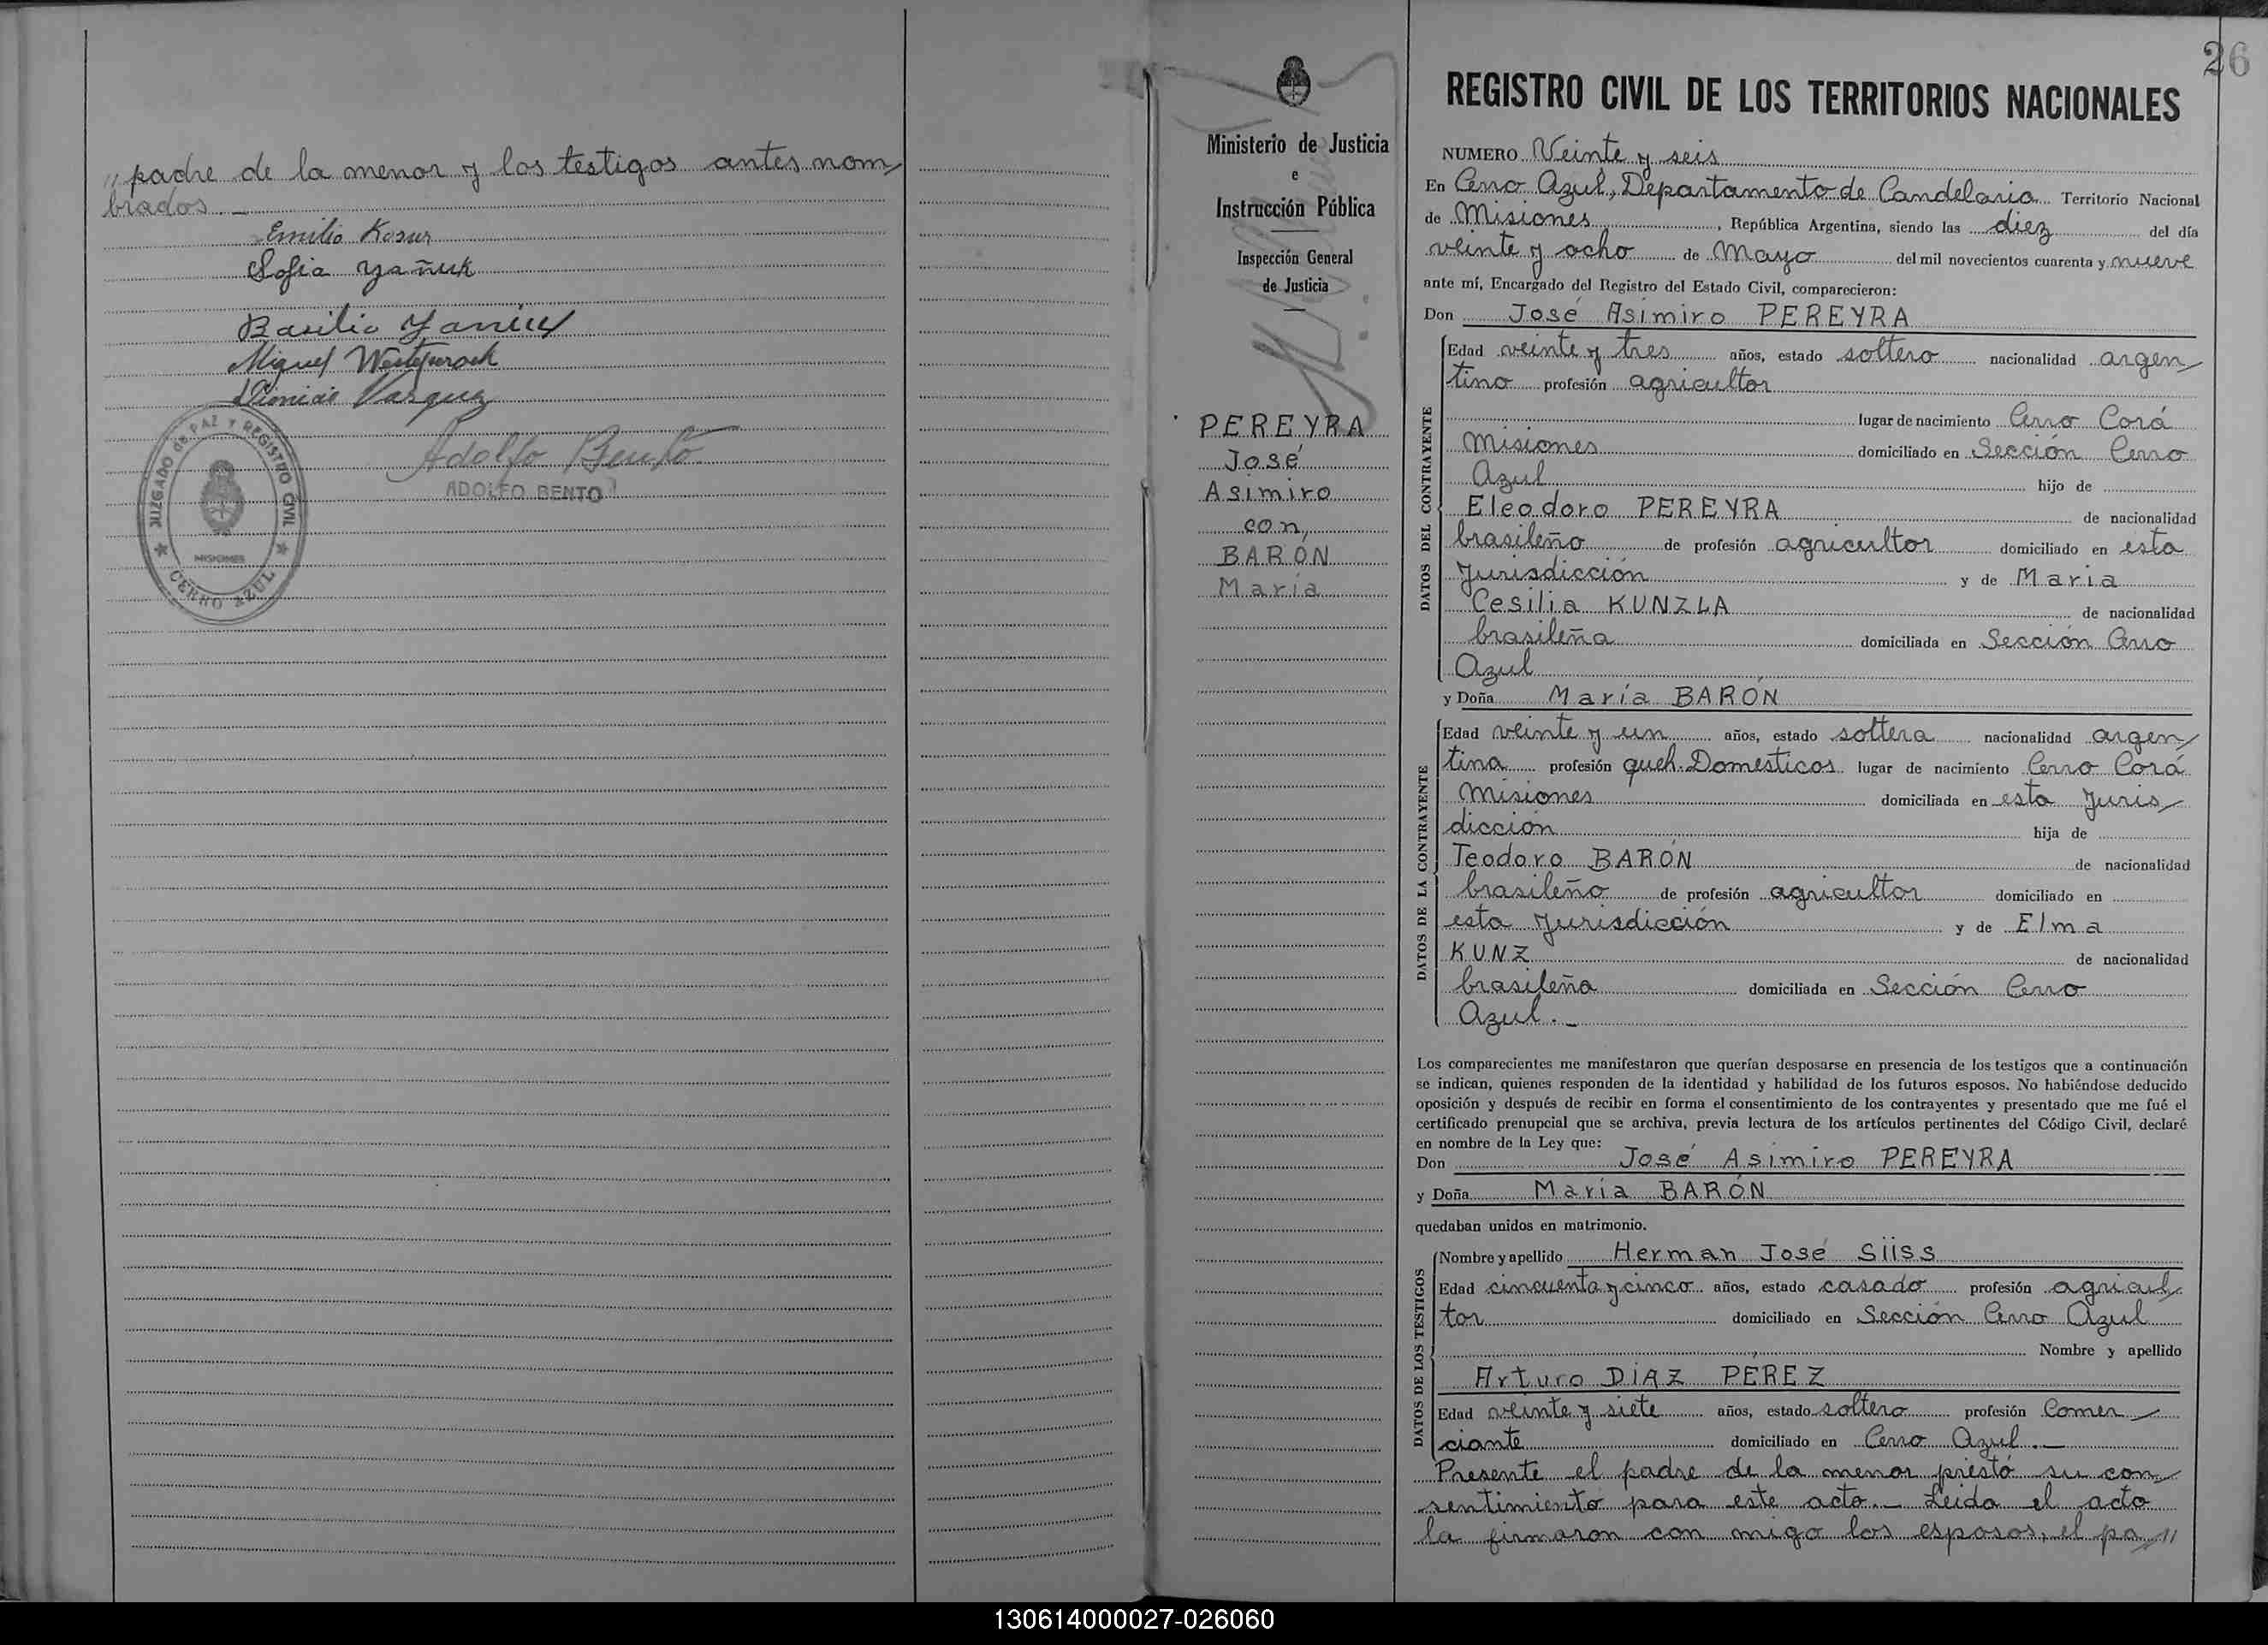 ,, padre de la menor y los testigos antes nom,
brados. —
Emilio Kosur
Sofia Yañuk
Basilio
Miguel
Dionicio Vasquez
Adolfo Bento
ADOLFO BENTO
JUZGADO de PAZ Y REGISTRO CIVIL
MISIONES
CERRO AZUL
Ministerio de Justicia
e
Instrucción Pública
Inspección General
de Justicia
PEREYRA
José
Asimiro
con,
BARÓN
María
26
REGISTRO CIVIL DE LOS TERRITORIOS NACIONALES
NUMERO Veinte y seis
En Cerro Azul, Departamento de Candelaria Territorio Nacional
de Misiones, República Argentina, siendo las diez del día
veinte y ocho de Mayo del mil novecientos cuarenta y nueve
ante mí, Encargado del Registro del Estado Civil, comparecieron:
Don José Asimiro PEREYRA
DATOS DEL CONTRAYENTE
Edad veinte y tres años, estado soltero nacionalidad argen,
tino profesión agricultor
lugar de nacimiento Cerro Corá
Misiones domiciliado en Sección Cerro
Azul hijo de
Eleodoro PEREYRA de nacionalidad
brasileño de profesión agricultor domiciliado en esta
Jurisdicción y de María
Cesilia KUNZLA de nacionalidad
brasileña domiciliada en Sección Cerro
Azul
y Doña María BARÓN
DATOS DE LA CONTRAYENTE
Edad veinte y un años, estado soltera nacionalidad argen,
tina profesión queh. Domésticos lugar de nacimiento Cerro Corá
Misiones domiciliada en esta Juris,
dicción hija de
Teodoro BARÓN de nacionalidad
brasileño de profesión agricultor domiciliado en
esta Jurisdicción y de Elma
KUNZ de nacionalidad
brasileña domiciliada en Sección Cerro
Azul. —
Los comparecientes me manifestaron que querían desposarse en presencia de los testigos que a continuación
se indican, quienes responden de la identidad y habilidad de los futuros esposos. No habiéndose deducido
oposición y después de recibir en forma el consentimiento de los contrayentes y presentado que me fué el
certificado prenupcial que se archiva, previa lectura de los artículos pertinentes del Código Civil, declaré
en nombre de la Ley que:
Don José Asimiro PEREYRA
y Doña María BARÓN
quedaban unidos en matrimonio.
DATOS DE LOS TESTIGOS
Nombre y apellido Herman José Siiss
Edad cincuenta y cinco años, estado casado profesión agricul,
tor domiciliado en Sección Cerro Azul
Nombre y apellido
Arturo DÍAZ PÉREZ
Edad veinte y siete años, estado soltero profesión Comer,
ciante domiciliado en Cerro Azul. —
Presente el padre de la menor prestó su con,
sentimiento para este acto. — Leida el acta
la firmaron con migo los esposos, el pa,,
130614000027-026060